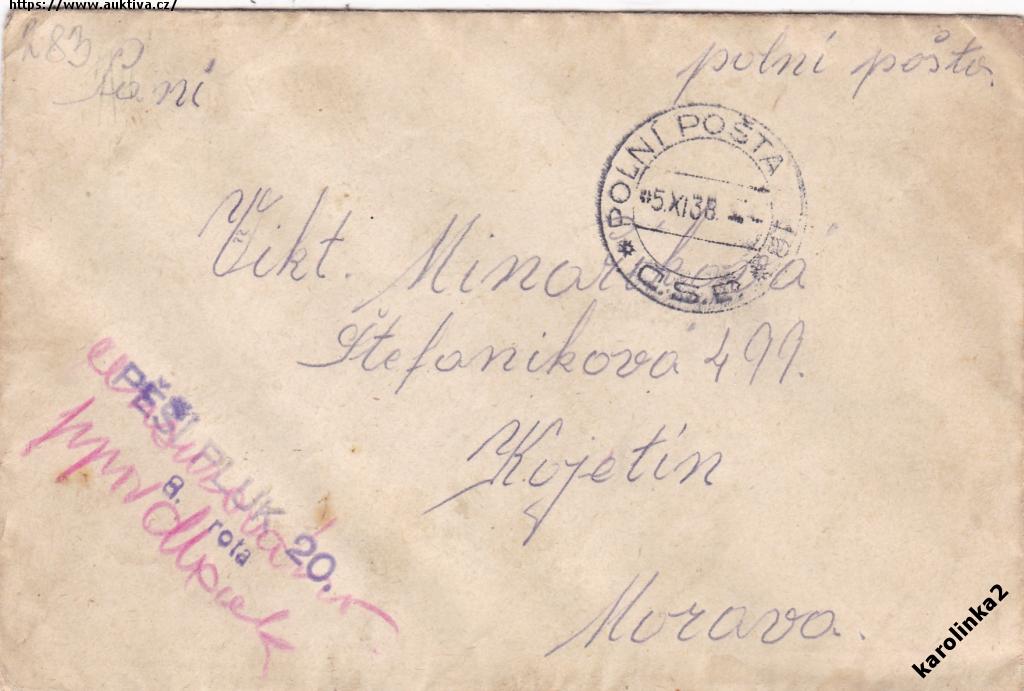 https://www.auktiva.cz/
283
Paní
polní pošta
POLNÍ POŠTA
5.XI.38
Č.S.P.
Vikt. Minaříková
Štefanikova 499.
Kojetín
Morava.
PĚŠÍ PLUK 20.
rota
karolinka2